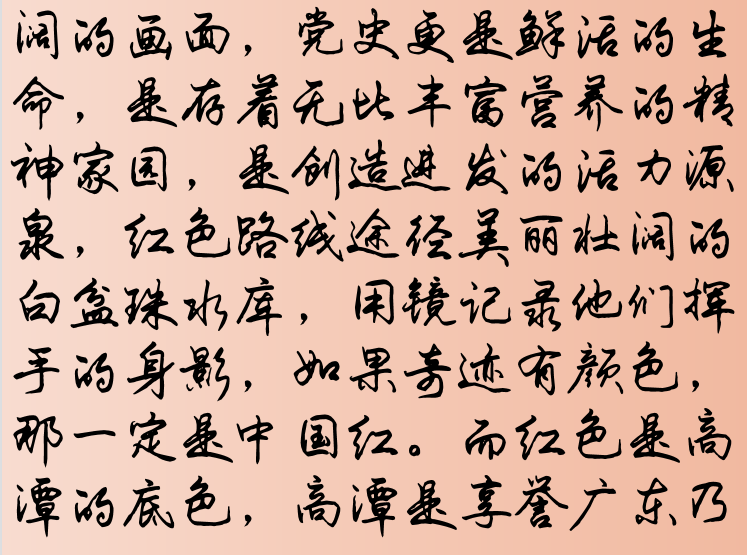 阔的画面，党史更是鲜活的生
命，是存着无比丰富营养的精
神家园，是创造进发的活力源
泉，红色路线途径美丽壮阔的
白盆珠水库，用镜记录他们挥
手的身影，如果奇迹有颜色，
那一定是中国红。而红色是高
潭的底色，高潭是享誉广东乃